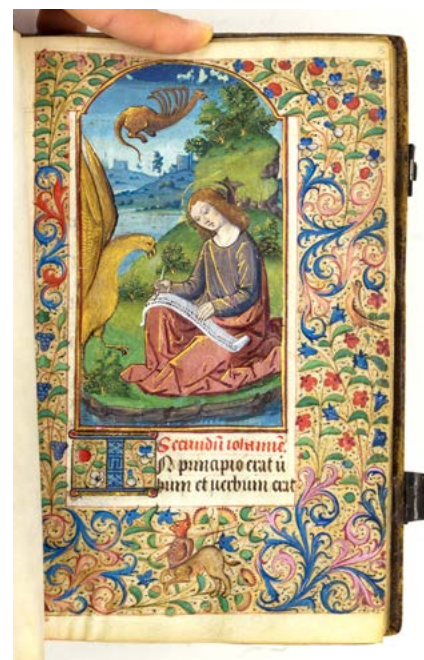 Secundū iohannē.
IN principio erat ū
bum et uerbum erat